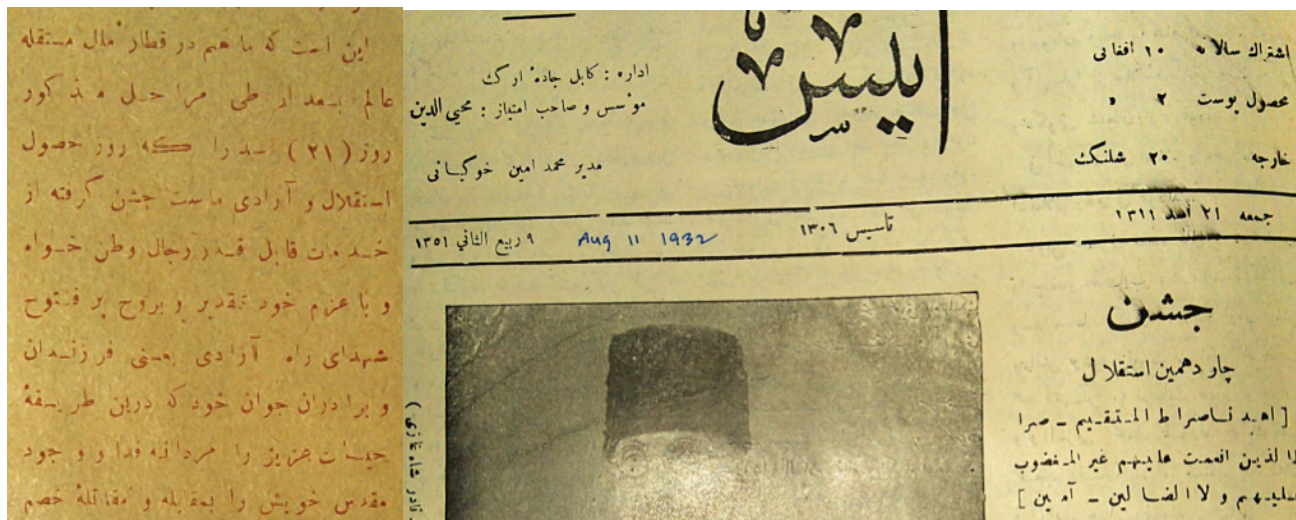 این است که ما هم در قطار ملل مستقله
عالم بعد از طی مراحل مذکور
روز (۲۱) اسد را که روز حصول
استقلال و آزادی ماست جشن گرفته از
خدمات قابل قدر رجال وطن خواه
و با عزم خود تقدیر و بروح پر فتوح
شهدای راه آزادی یعنی فرزندان
و برادران جوان خود که درین طریقهٔ
حیات عزیز را مردانه فدا و وجود
مقدس خویش را بمقابله و مقاتلهٔ خصم
اشتراك سالانه ۱۰ افغانی
محصول پوست ۲ »
خارجه ۲۰ شلنگ
انیس
اداره : کابل جادهٔ ارگ
مؤسس و صاحب امتیاز : محیی الدین
مدیر محمد امین خوگیانی
جمعه ۲۱ اسد ۱۳۱۱ تاسیس ۱۳۰۶ Aug 11 1932 ۹ ربیع الثانی ۱۳۵۱
جشن
چار دهمین استقلال
[ اهدناصراط المستقیم ـ صرا
ط الذین انعمت علیهم غیر المغضوب
علیهم و لا الضالین ـ آمین ]
نادر شاه غازی )